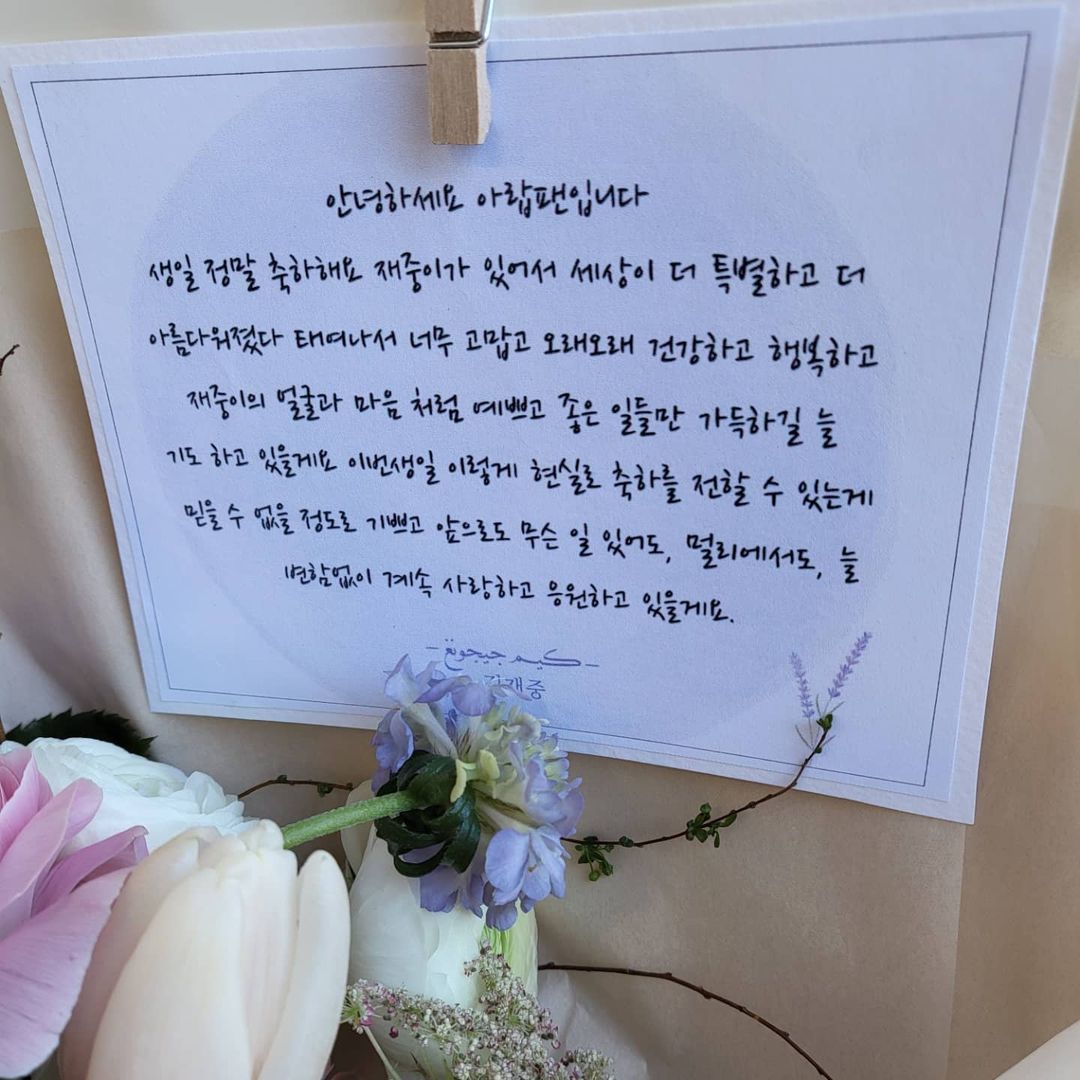 안녕하세요 아랍팬입니다
생일 정말 축하해요 재중이가 있어서 세상이 더 특별하고 더
아름다워졌다 태여나서 너무 고맙고 오래오래 건강하고 행복하고
재중이의 얼굴과 마음 처럼 예쁘고 좋은 일들만 가득하길 늘
기도 하고 있을게요 이번생일 이렇게 현실로 축하를 전할 수 있는게
믿을 수 없을 정도로 기쁘고 앞으로도 무슨 일 있어도, 멀리에서도, 늘
변함없이 계속 사랑하고 응원하고 있을게요.
- كيم جيجونغ -
김재중